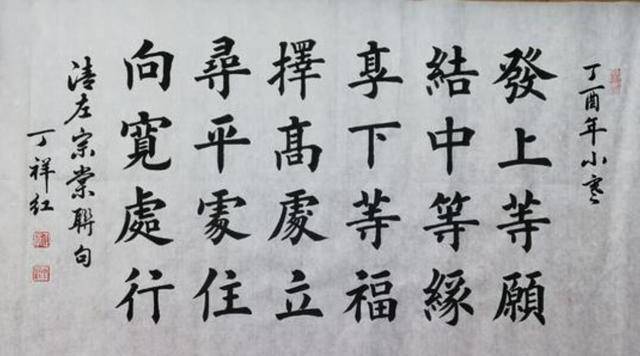 丁酉年小寒
發上等願
結中等緣
享下等福
擇高處立
尋平處住
向寬處行
清左宗棠聯句
丁祥红